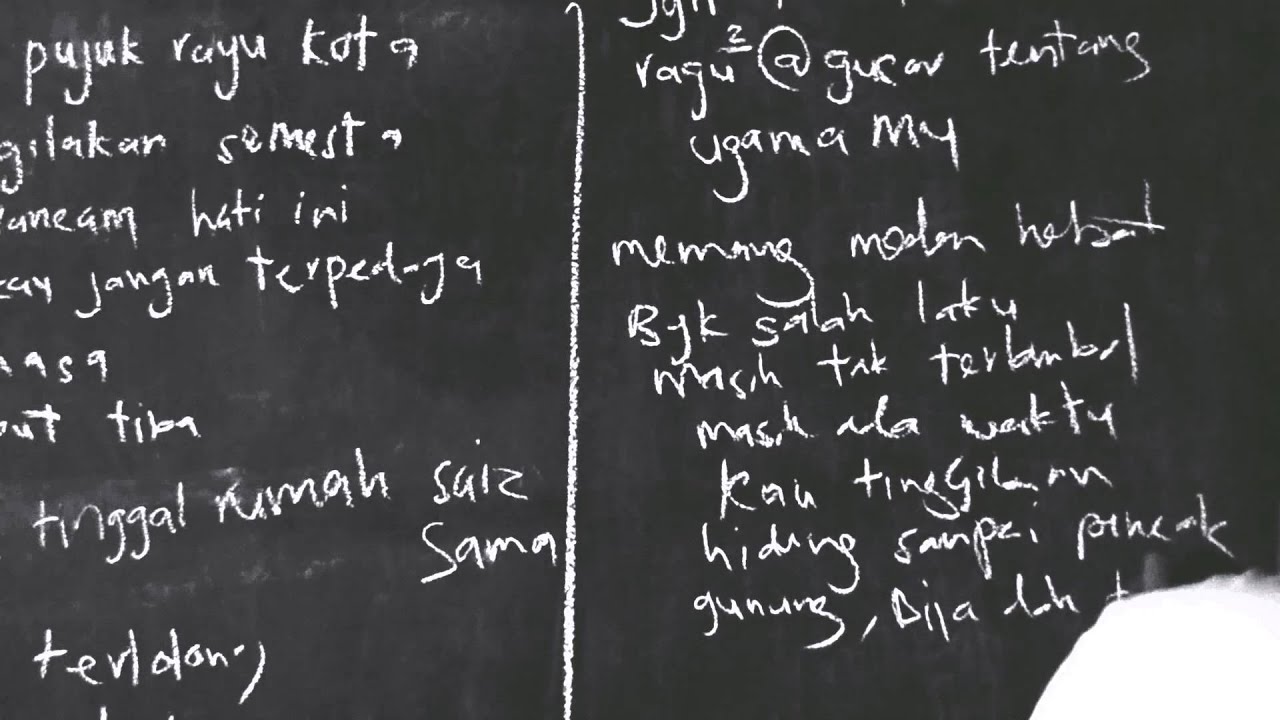 pujuk rayu kota
gilakan semesta
ancam hati ini
jangan terpedaya
masa
tiba
tinggal rumah saiz
sama
Jgn
ragu² @ gusar tentang
ugama My
memang moden hebat
Byk salah laku
masih tak
masih ada waktu
kau tinggikan
hidung sampai puncak
gunung, Bija lah